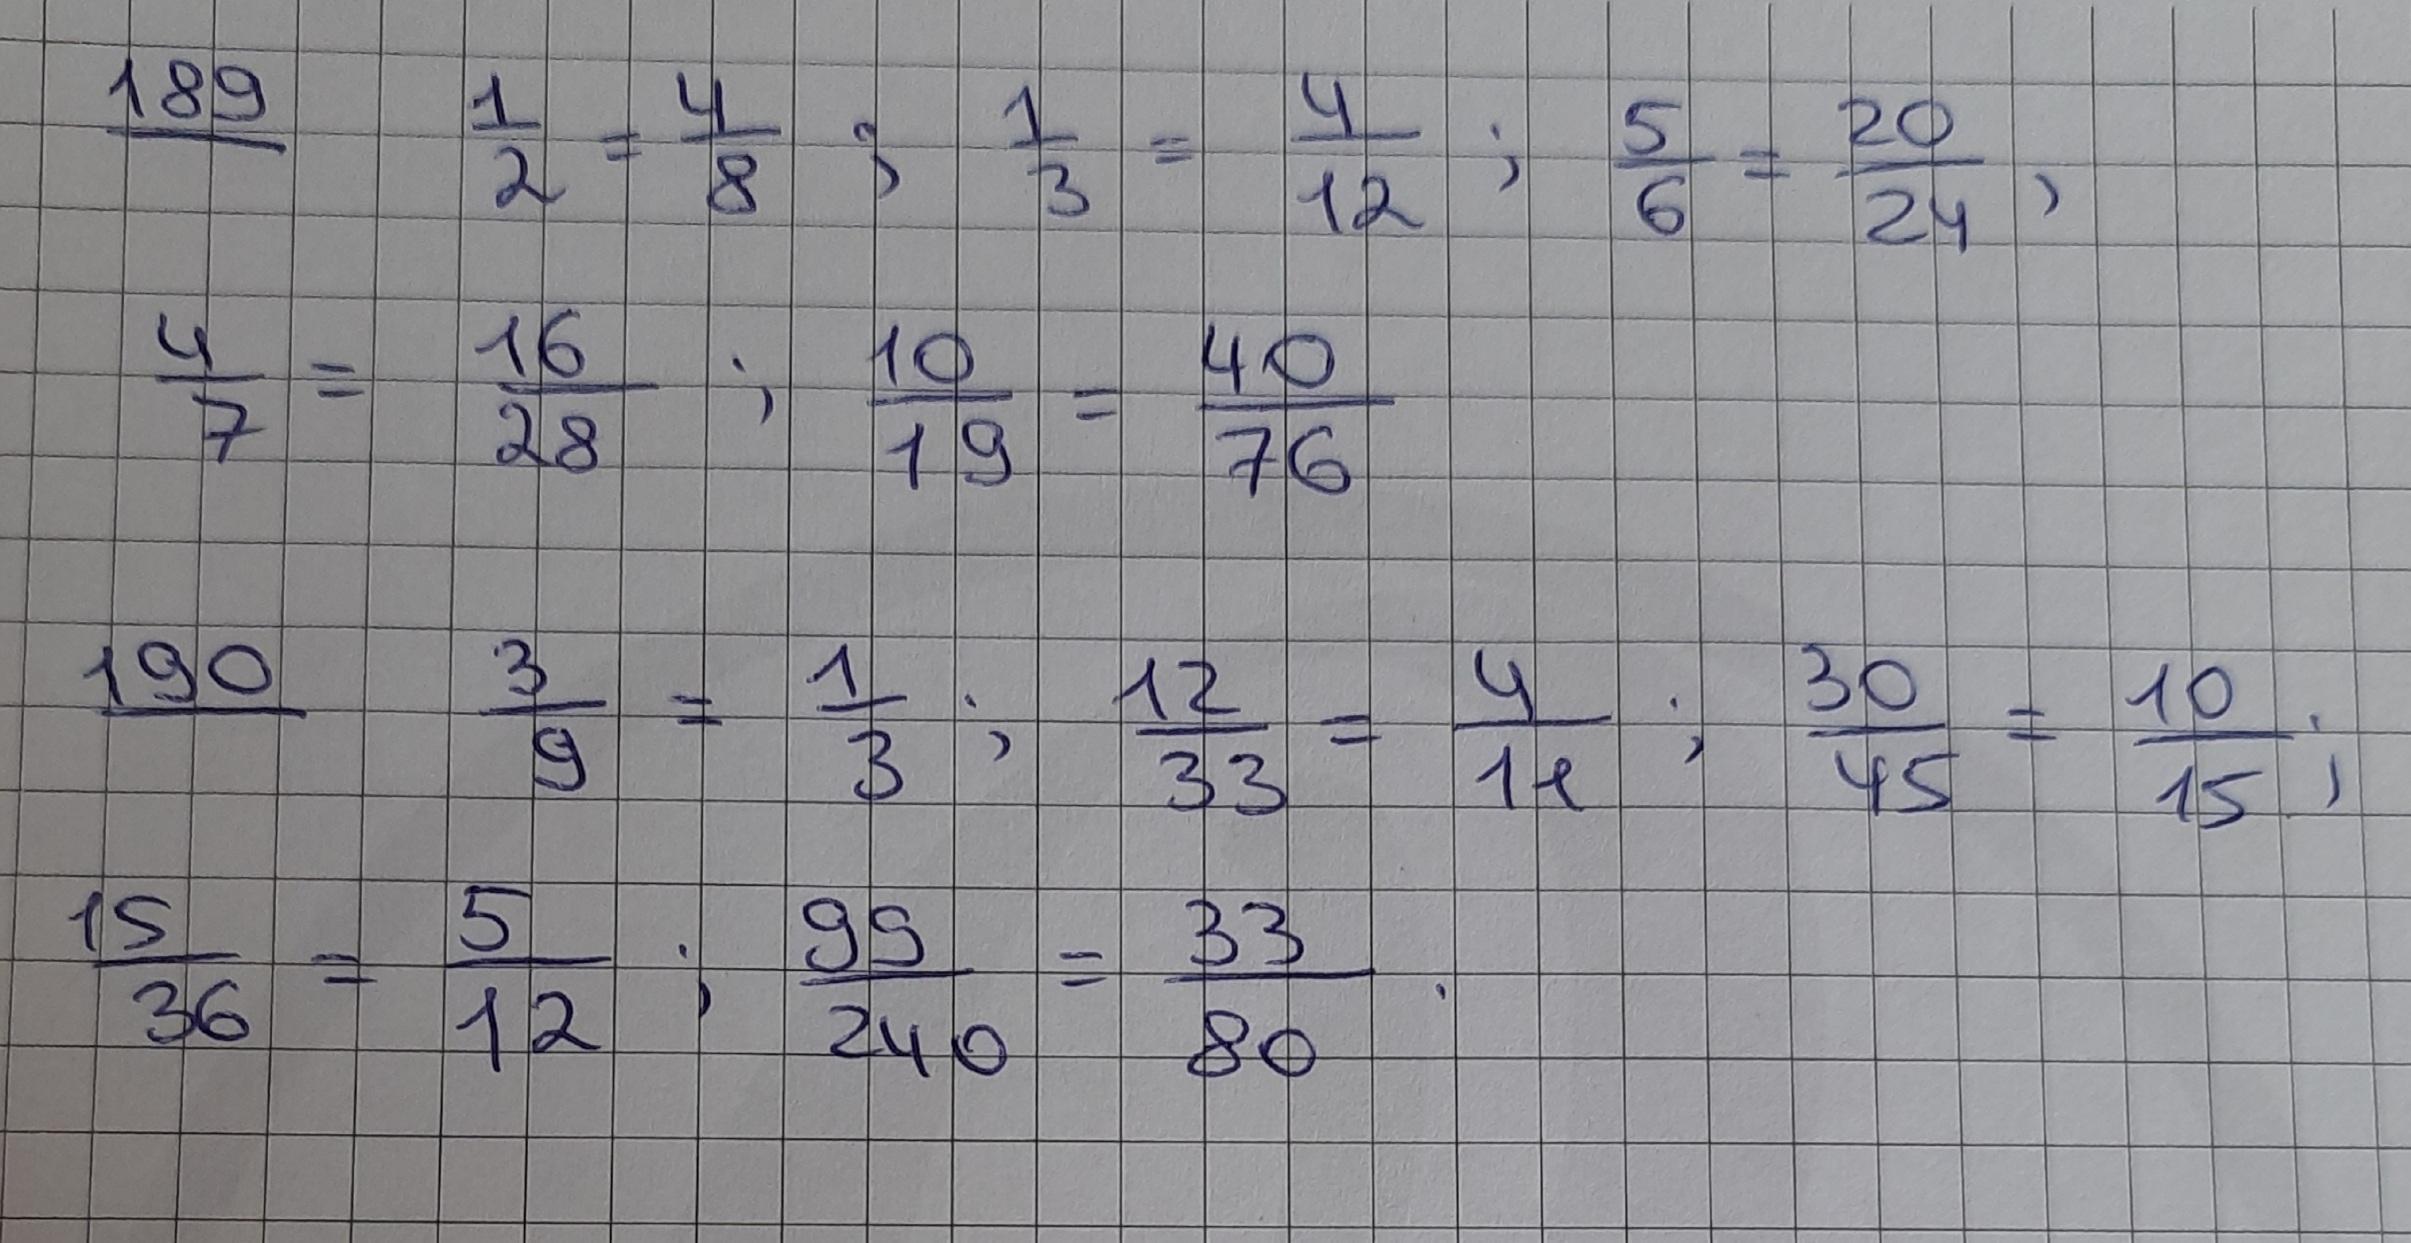 189 1/2 = 4/8 ; 1/3 = 4/12 ; 5/6 = 20/24 ,
4/7 = 16/28 ; 10/19 = 40/76
190 3/9 = 1/3 ; 12/33 = 4/11 ; 30/45 = 10/15 ;
15/36 = 5/12 ; 99/240 = 33/80 .